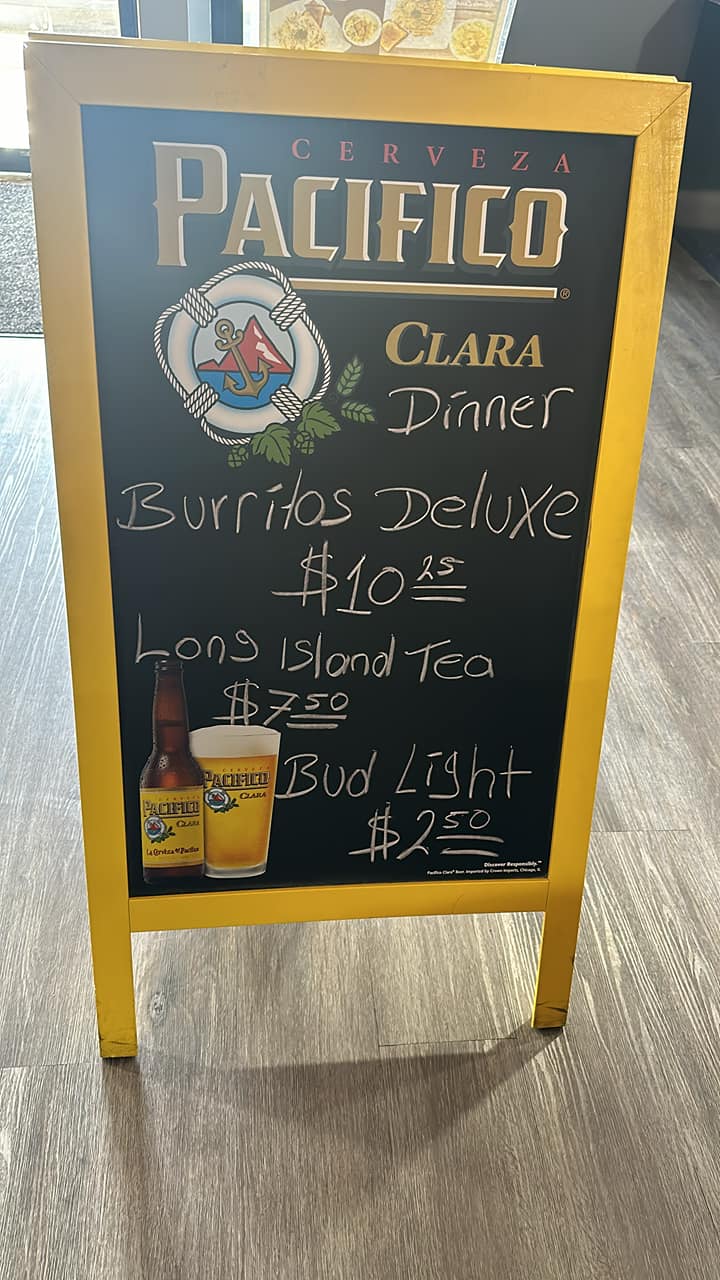 CERVEZA
PACIFICO
®
CLARA
Dinner
Burritos Deluxe
$10 25
Long Island Tea
$7 50
Bud Light
$2 50
CERVEZA
PACIFICO
CLARA
La Cerveza del Pacifico
CERVEZA
PACIFICO
CLARA
Discover Responsibly.™
Pacifico Clara® Beer. Imported by Crown Imports, Chicago, IL